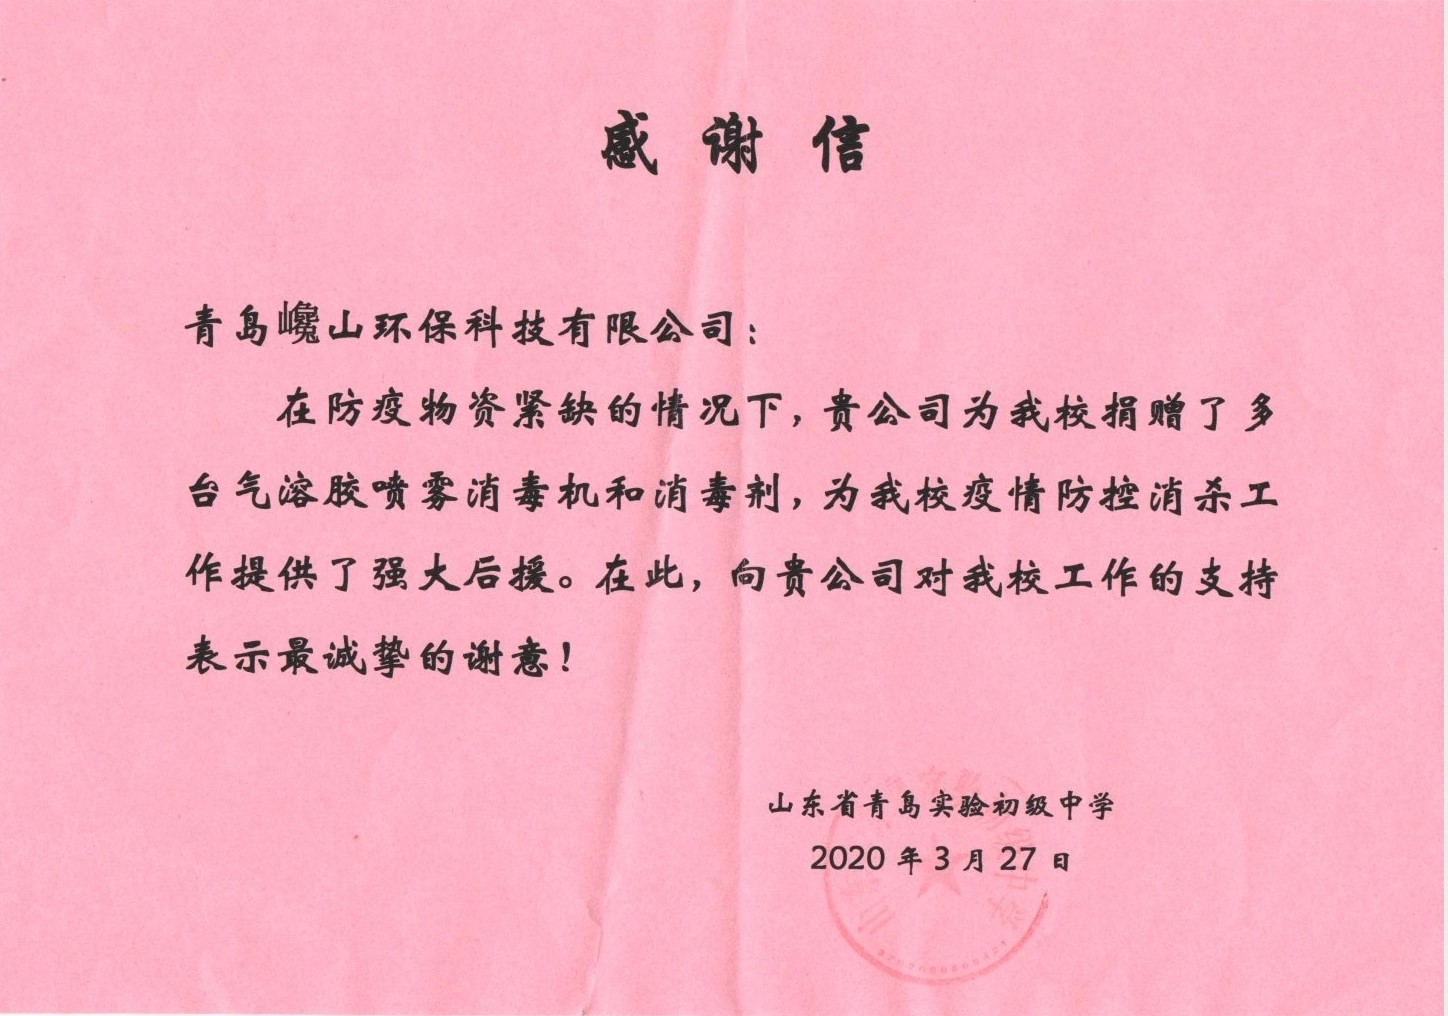 感谢信
青岛巉山环保科技有限公司：
在防疫物资紧缺的情况下，贵公司为我校捐赠了多
台气溶胶喷雾消毒机和消毒剂，为我校疫情防控消杀工
作提供了强大后援。在此，向贵公司对我校工作的支持
表示最诚挚的谢意！
山东省青岛实验初级中学
2020年3月27日